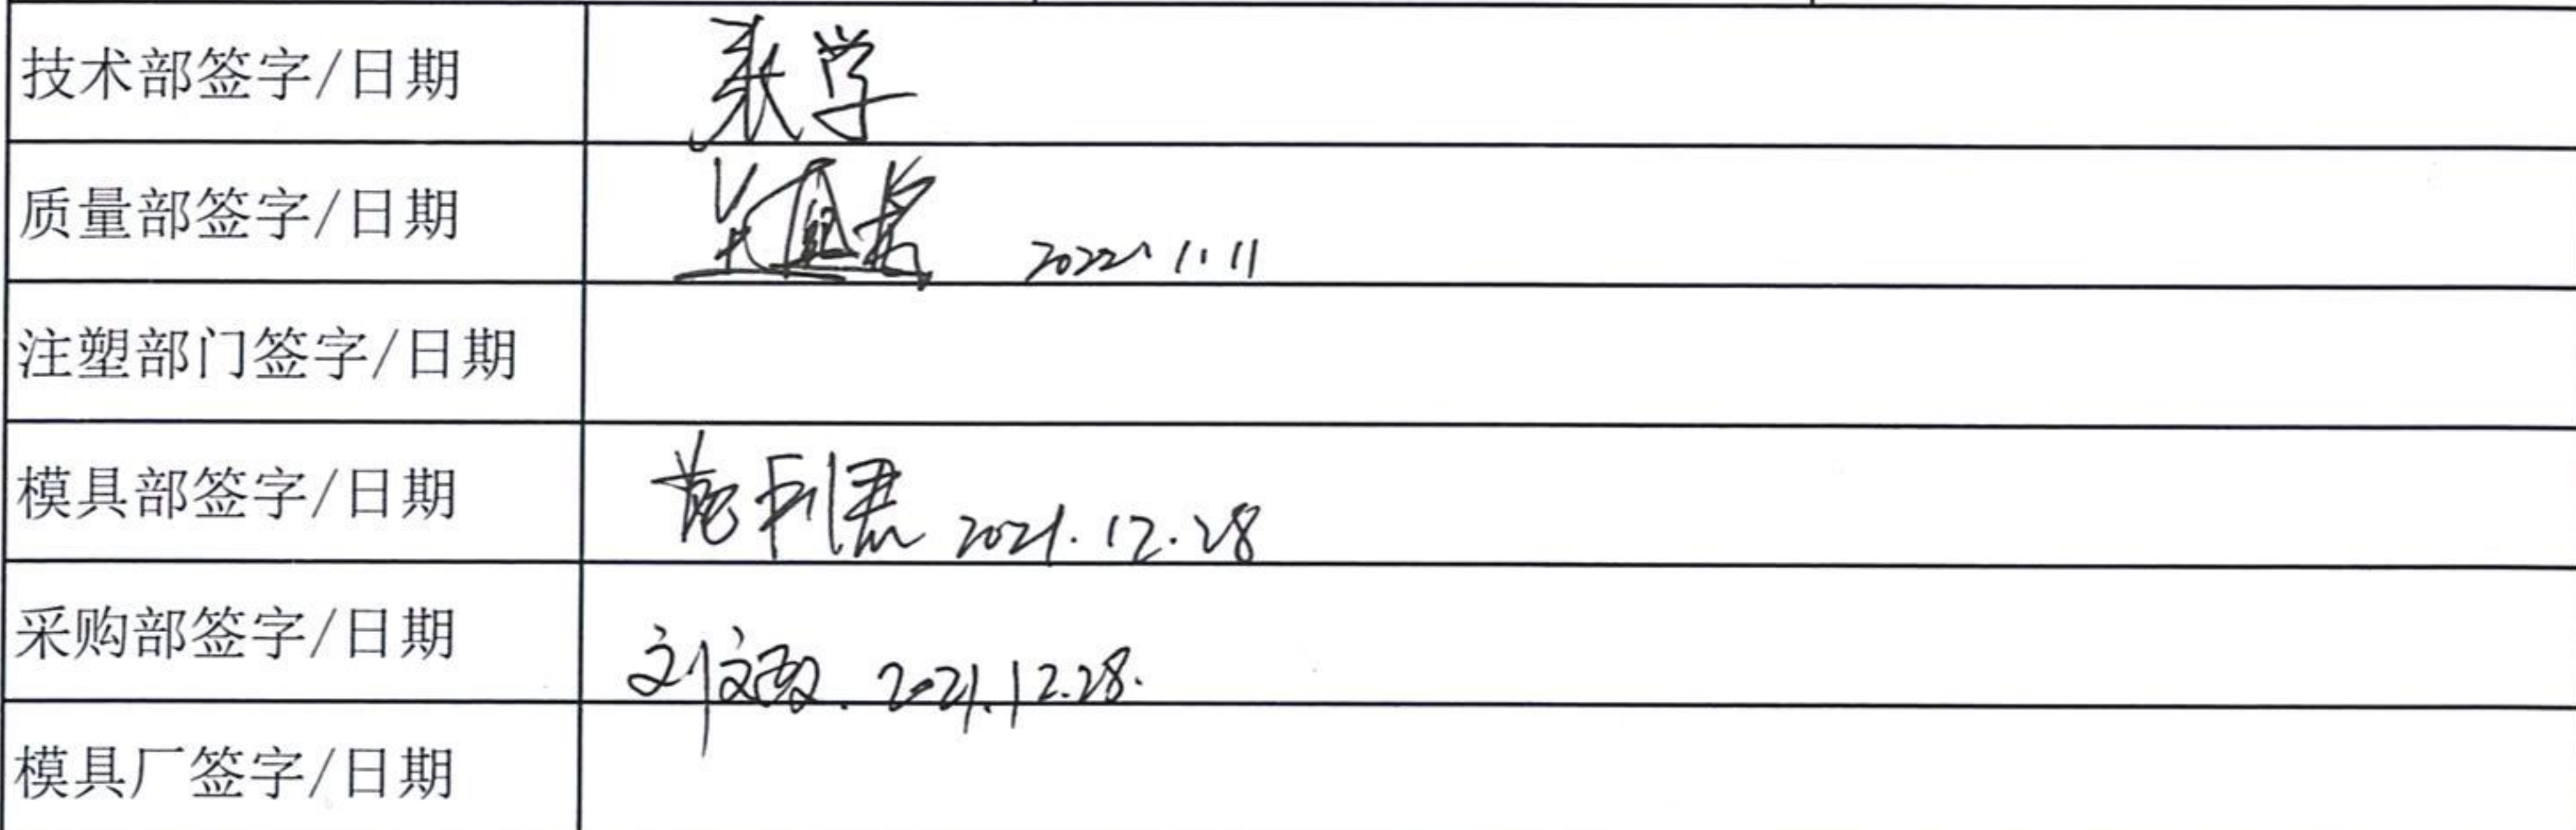 技术部签字/日期
质量部签字/日期 2022.1.11
注塑部门签字/日期
模具部签字/日期 2021.12.28
采购部签字/日期 刘文 2021.12.28.
模具厂签字/日期